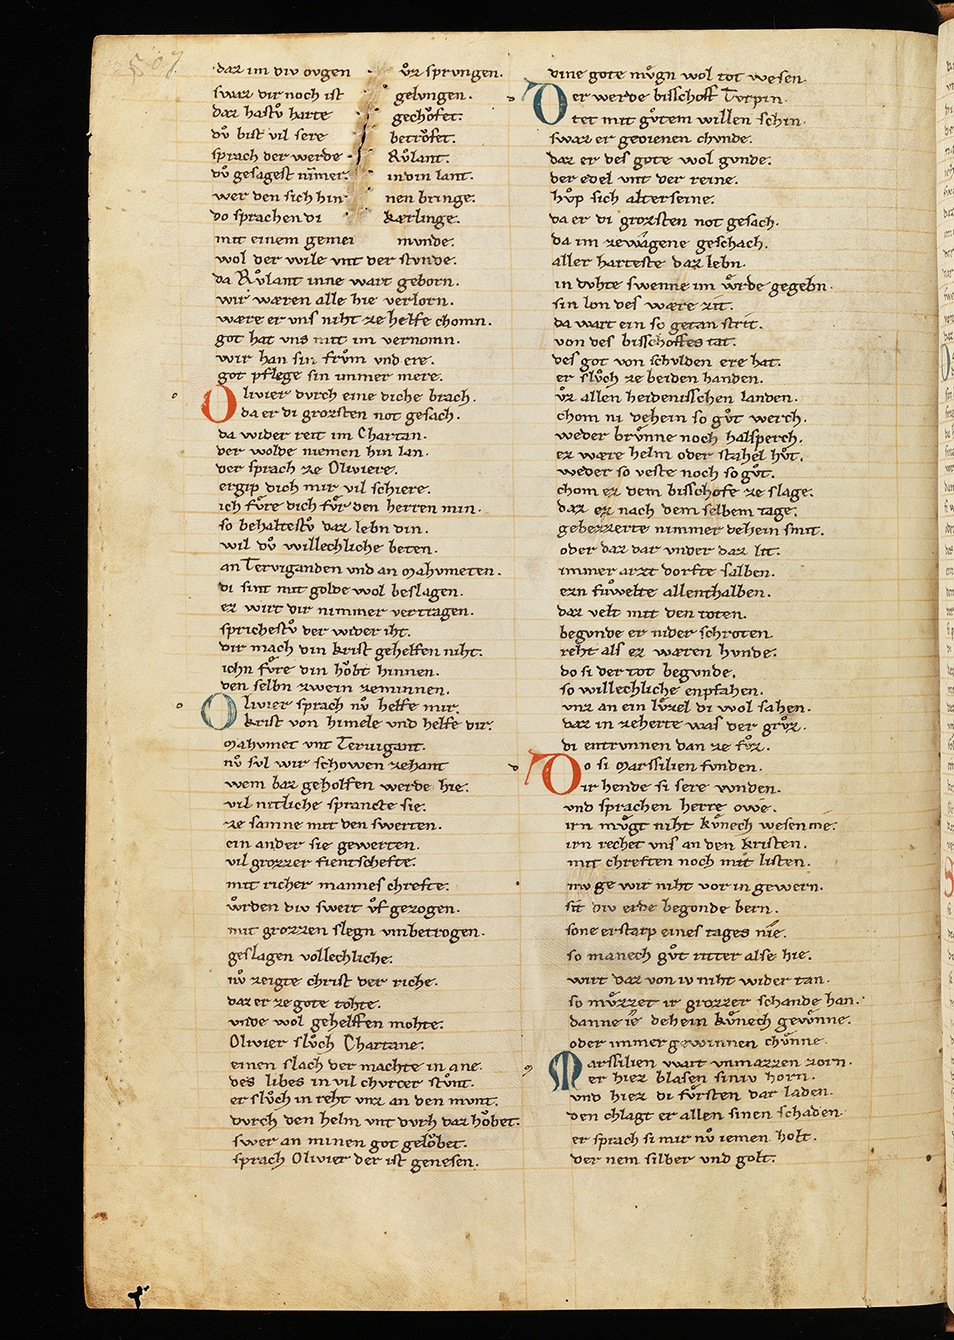 daz im div ovgen vz sprvngen.
swaz dir noch ist gelvngen.
daz hastv̊ harte gechǒfet.
dv̊ bist vil sere betrǒfet.
sprach der werde Rv̊lant.
dv̊ gesagest nimer in din lant.
wer den sich hin nen bringe.
do sprachen di kærlinge.
mit einem gemei mvnde.
wol der wile vnt der stvnde.
da Rv̊lant inne wart geborn.
wir wæren alle hie verlorn.
wære er vns niht ze helfe chomn.
got hat vns mit im vernomn.
wir han sin frv̊m vnd ere.
got pflege sin immer mere.
Olivier dvrch eine diche brach.
da er di grozsten not gesach.
da wider reit im Chartan.
der wolde niemen hin lan.
der sprach ze Oliviere.
ergip dich mir vil schiere.
ich fv̊re dich fv̊r den herren min.
so behaltestv̊ daz lebn din.
wil dv̊ willechliche beten.
an Terviganden vnd an mahvmeten.
di sint mit golde wol beslagen.
ez wirt dir nimmer vertragen.
sprichestv̊ der wider iht.
dir mach din krist gehelfen niht.
ichn fv̊re din hǒbt hinnen.
den selbn zwein zeminnen.
Olivier sprach nv̊ helfe mir.
krist von himele vnd helfe dir.
mahvmet vnt Tervigant.
nv̊ svl wir schowen zehant
wem baz geholfen werde hie.
vil nitliche sprancte sie.
ze samne mit den swerten.
ein ander sie gewerten.
vil grozzer fientschefte.
mit richer mannes chrefte.
wv̊rden div swert vf gezogen.
mit grozzen slegn vnbetrogen.
geslagen vollechliche.
nv̊ zeigte christ der riche.
daz er ze gote tohte.
vnde wol gehelffen mohte.
Olivier slv̊ch Chartane.
einen slach der machte in ane.
des libes in vil chvrcer stv̊nt.
er slv̊ch in reht vnz an den mvnt.
dvrch den helm vnt dvrh daz hǒbet.
swer an minen got gelǒbet.
sprach Olivier der ist genesen.
dine gote mv̊gn wol tot wesen.
Der werde bisschoff Tvrpin.
tet mit gv̊tem willen schin.
swaz er gedienen chvnde.
daz er des gote wol gvnde.
der edel vnt der reine.
hv̊p sich alterseine.
da er di grozsten not gesach.
da im zewagene geschach.
aller harteste daz lebn.
in dvhte swenne im wv̊rde gegebn.
sin lon des wære zit.
da wart ein so getan strit.
von des bisschoffes tat.
des got von schvlden ere hat.
er slv̊ch ze beiden handen.
vz allen heidenisschen landen.
chom ni dehein so gv̊t werch.
weder brv̊nne noch halsperch.
ez wære helm oder stahel hv̊t.
weder so veste noch so gv̊t.
chom ez dem bisschofe ze slage.
daz ez nach dem selbem tage.
gebezzerte nimmer dehein smit.
oder daz dar vnder daz lit.
immer arzt dorfte salben.
ern fv̊welte allenthalben.
daz velt mit den toten.
begvnde er nider schroten.
reht als ez wæren hvnde.
do si der tot begvnde.
so willechliche enpfahen.
vnz an ein lv̊zel di wol sahen.
daz in zeherte was der grv̊z.
di entrvnnen dan ze fv̊z.
Do si marssilien fvnden.
ir hende si sere wnden.
vnd sprachen herre owe.
irn mv̊gt niht kv̊nech wesen me.
irn rechet vns an den kristen.
mit chreften noch mit listen.
mvge wir niht vor in gewern.
sit div erde begonde bern.
sone erstarp eines tages nie.
so manech gv̊t ritter alse hie.
wirt daz von iv niht wider tan.
so mv̊zzet ir grozzer schande han.
danne ie dehein kv̊nech gewnne.
oder immer gewinnen chv̊nne.
Marssilien wart vnmazzen zorn.
er hiez blasen siniv horn.
vnd hiez di fv̊rsten dar laden.
den chlagt er allen sinen schaden.
er sprach si mir nv̊ iemen holt.
der nem silber vnd golt.